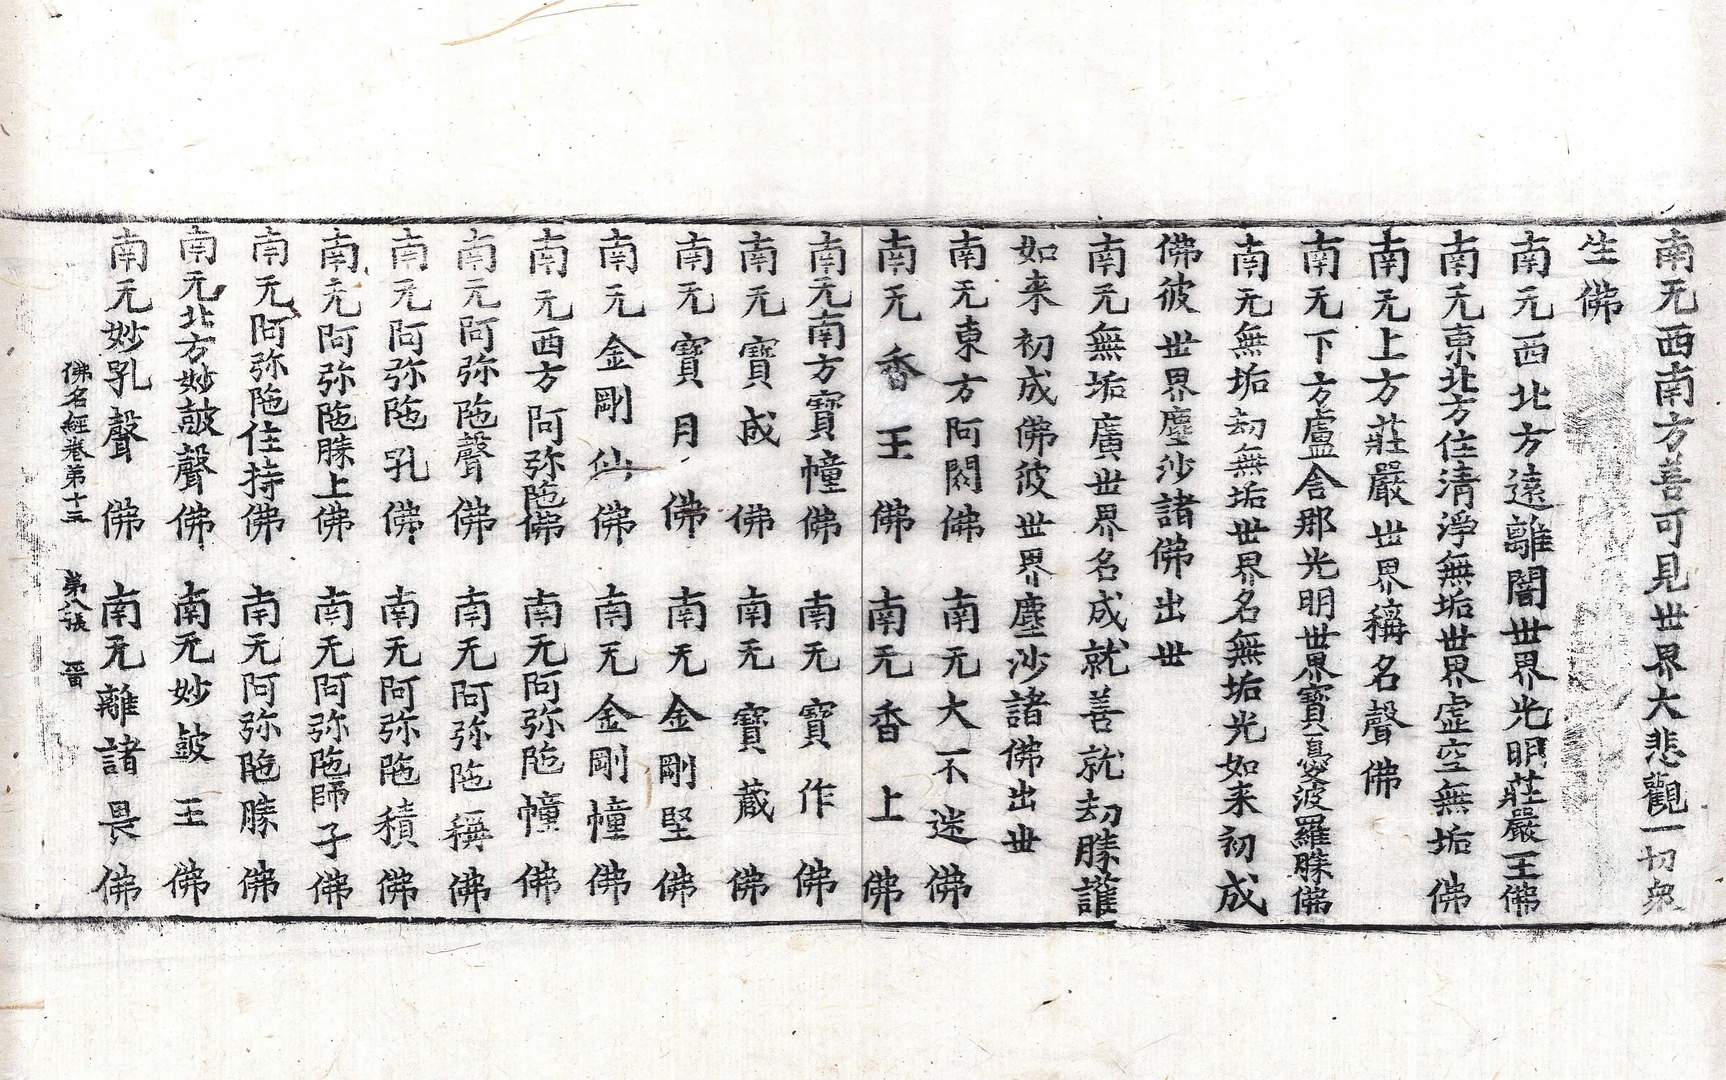 南无西南方善可見世界大悲觀一切衆
生佛
南无西北方遠離闇世界光明莊嚴王佛
南无東北方住清淨無垢世界虛空無垢佛
南无上方莊嚴世界稱名聲佛
南无下方盧舍那光明世界寶憂波羅勝佛
南无無垢劫無垢世界名無垢光如来初成
佛彼世界塵沙諸佛出世
南无無垢廣世界名成就善就劫勝護
如来初成佛彼世界塵沙諸佛出世
南无東方阿閦佛 南无大不迷佛
南无香王佛 南无香上佛
南无南方寶幢佛 南无寶作佛
南无寶成佛 南无寶藏佛
南无寶月佛 南无金剛堅佛
南无金剛仙佛 南无金剛幢佛
南无西方阿弥陁佛 南无阿弥陁幢佛
南无阿弥陁聲佛 南无阿弥陁稱佛
南无阿弥陁孔佛 南无阿弥陁積佛
南无阿弥陁勝上佛 南无阿弥陁師子佛
南无阿弥陁住持佛 南无阿弥陁勝佛
南无北方妙皷聲佛 南无妙皷王佛
南无妙孔聲佛 南无離諸畏佛
佛名經卷第十三 第八張 晉